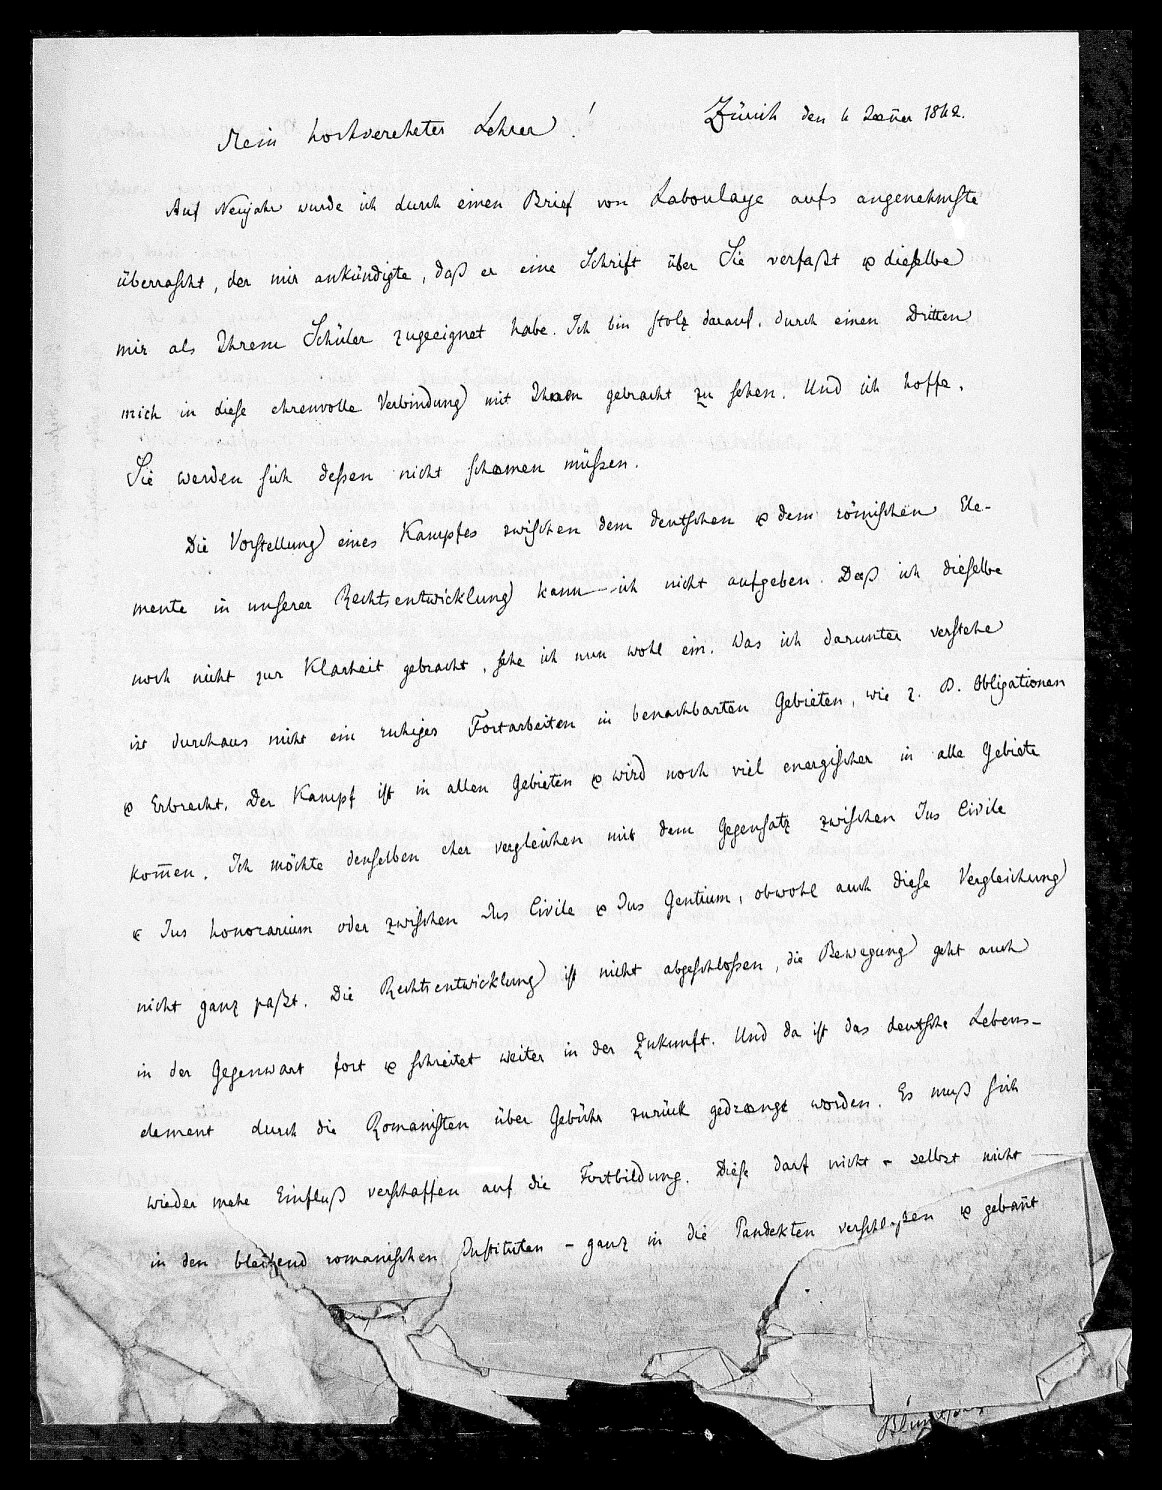 Zürich den 4 Jañer 1842.
Mein hochverehrter Lehrer!
Auf Neujahr wurde ich durch einen Brief von Laboulaye aufs angenehmste
überrascht, der mir ankündigte, daß er eine Schrift über Sie verfaßt & dieselbe
mir als Ihrem Schüler zugeeignet habe. Ich bin stolz darauf, durch einen Dritten
mich in diese ehrenvolle Verbindung mit Ihnen gebracht zu sehen. Und ich hoffe,
Sie werden sich deßen nicht schämen müßen.
Die Vorstellung eines Kampfes zwischen dem deutschen & dem römischen Ele-
mente in unserer Rechtsentwicklung kann ich nicht aufgeben. Daß ich dieselbe
noch nicht zur Klarheit gebracht, sehe ich nun wohl ein. Was ich darunter verstehe
ist durchaus nicht ein ruhiges Fortarbeiten in benachbarten Gebieten, wie z. B. Obligationen
& Erbrecht. Der Kampf ist in allen Gebieten & wird noch viel energischer in alle Gebiete
kom̄en. Ich möchte denselben eher vergleichen mit dem Gegensatz zwischen Jus Civile
& Jus honorarium oder zwischen Jus Civile & Jus Gentium, obwohl auch diese Vergleichung
nicht ganz paßt. Die Rechtsentwicklung ist nicht abgeschloßen, die Bewegung geht auch
in der Gegenwart fort & schreitet weiter in der Zukunft. Und da ist das deutsche Lebens-
element durch die Romanisten über Gebühr zurück gedrängt worden. Es muß sich
wieder mehr Einfluß verschaffen auf die Fortbildung. Diese darf nicht - selbst nicht
in den bleibend romanischen Instituten - ganz in die Pandekten verschloßen & geban̄t